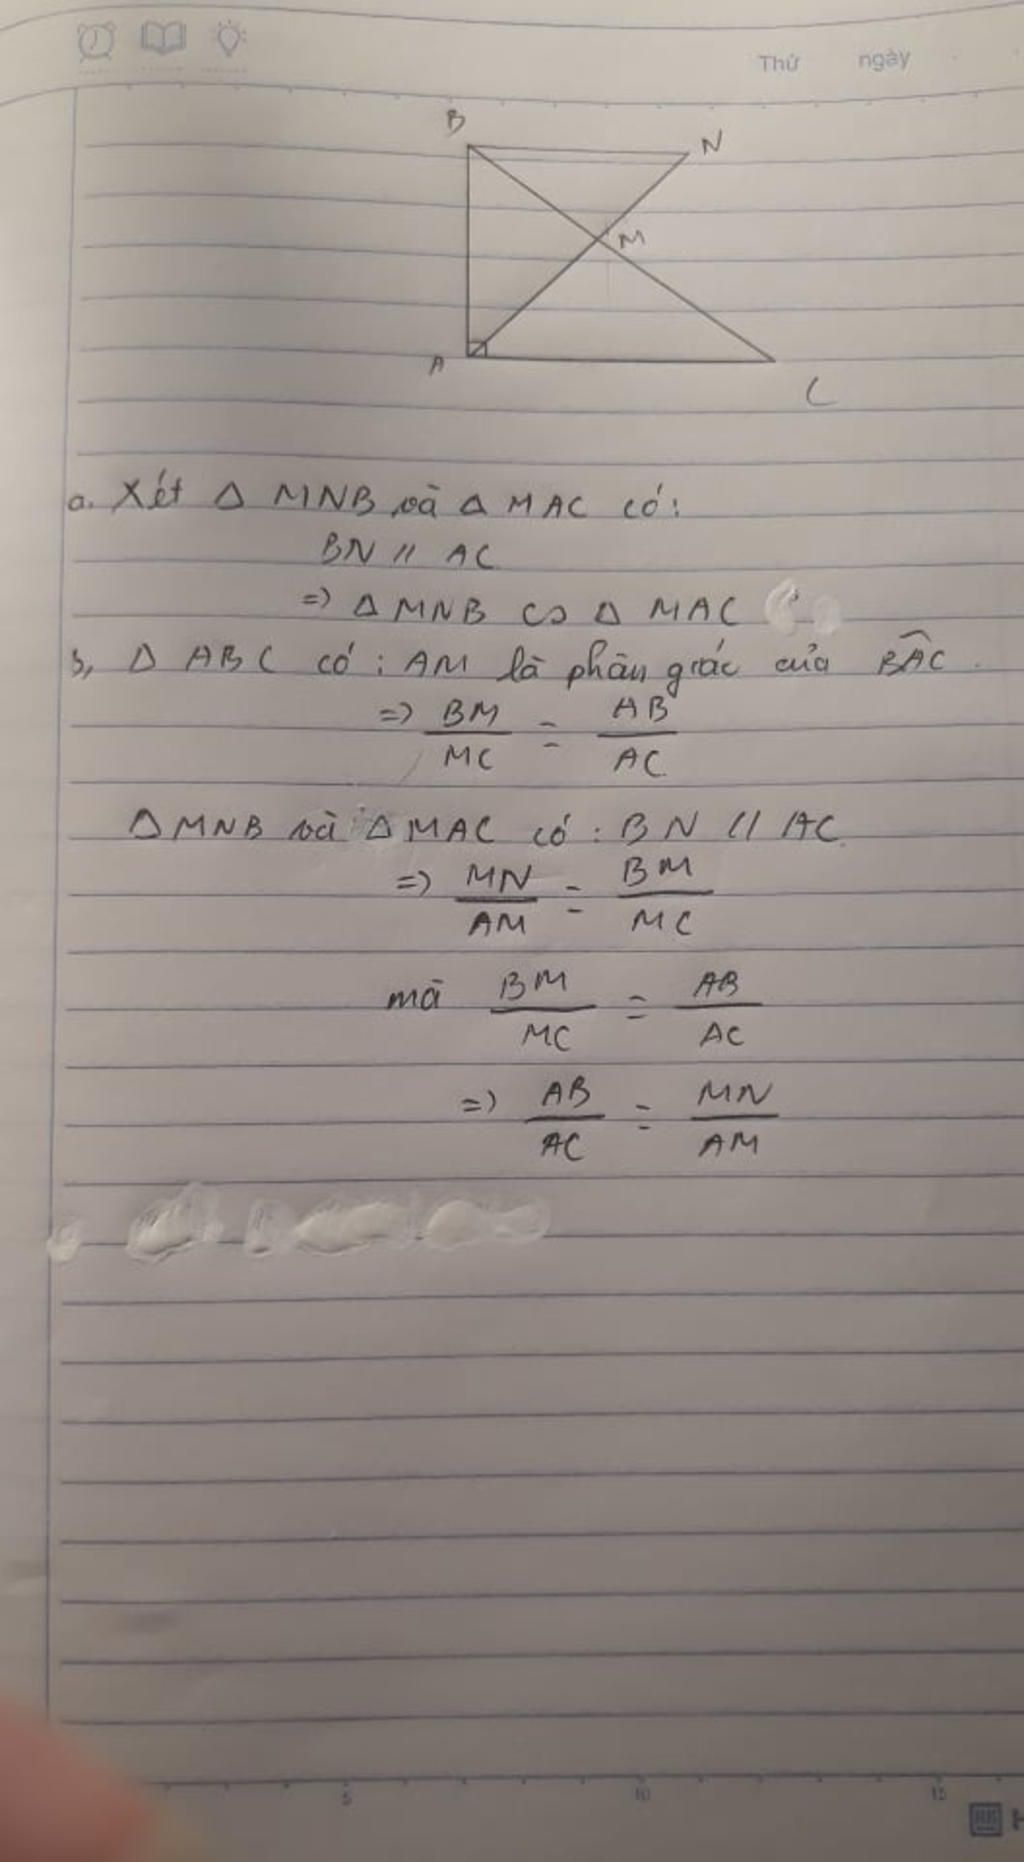 Thứ ngày
B
N
M
A
C
a. Xét Δ MNB và Δ MAC có:
BN // AC
=> Δ MNB ∽ Δ MAC
b, Δ ABC có : AM là phân giác của BAC
=> BM/MC = AB/AC
Δ MNB và Δ MAC có : BN // AC
=> MN/AM = BM/MC
mà BM/MC = AB/AC
=> AB/AC = MN/AM
5 10 15